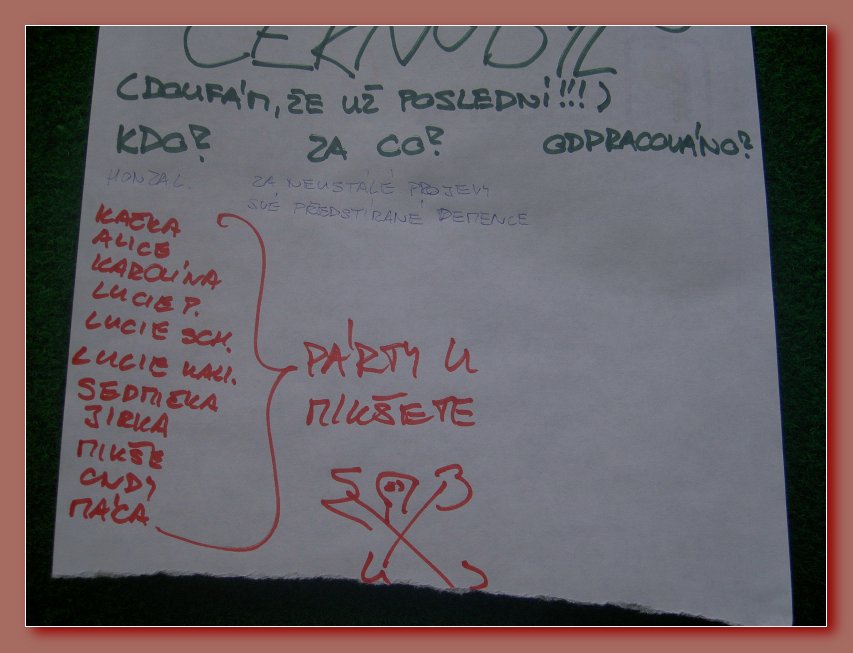 ČERNOBYL
(DOUFÁM, ŽE UŽ POSLEDNÍ!!!)
KDO? ZA CO? ODPRACOVÁNO?
HONZA L. ZA NEUSTÁLÉ PROJEVY
SVÉ PŘEDSTÍRANÉ DEMENCE
KAČKA
ALICE
KAROLÍNA
LUCIE P.
LUCIE SCH.
LUCIE
SEDMIČKA
JIRKA
MIKŠE
CNDY
MÁCA
PÁRTY U
MIKŠETE